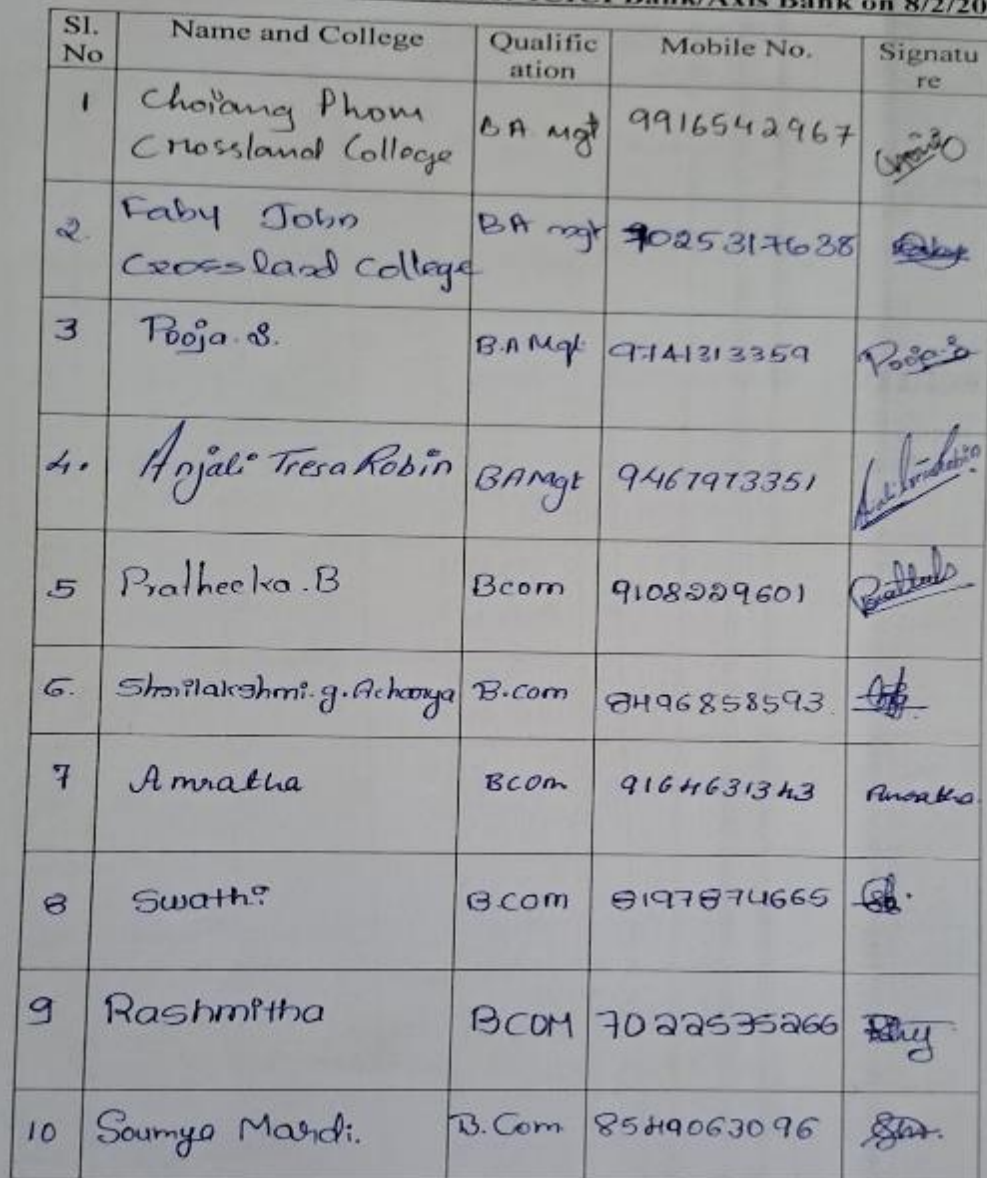 Bank/Axis Bank on 8/2/20
Sl. No Name and College Qualification Mobile No. Signature
1 Choiang Phom BA Mgt 9916542967
Crossland College
2. Faby John BA mgt 7025317638
Crossland College
3 Pooja.S. B.A Mgt 9741313359 Pooja.S
4. Anjali Tresa Robin BAMgt 9467973351
5 Pratheeka.B Bcom 9108229601
6. Shrilakshmi.g.Acharya B.com 8496858593
7 Amratha BCom 9164631343 Amratha
8 Swathi B.com 8197874665
9 Rashmitha BCOM 7022535266
10 Soumya Mardi. B.Com 8549063096